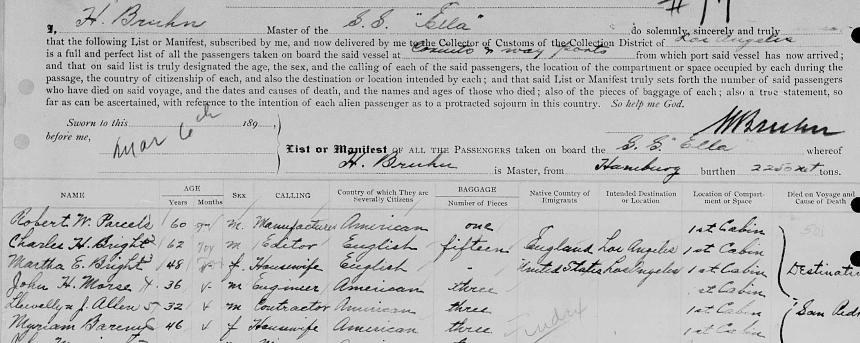 #17
I, H. Bruhn Master of the S.S. "Ella" do solemnly, sincerely and truly
that the following List or Manifest, subscribed by me, and now delivered by me to the Collector of Customs of the Collection District of Los Angeles
is a full and perfect list of all the passengers taken on board the said vessel at Corinto & way ports from which port said vessel has now arrived;
and that on said list is truly designated the age, the sex, and the calling of each of the said passengers, the location of the compartment or space occupied by each during the
passage, the country of citizenship of each, and also the destination or location intended by each; and that said List or Manifest truly sets forth the number of said passengers
who have died on said voyage, and the dates and causes of death, and the names and ages of those who died; also of the pieces of baggage of each; also a true statement, so
far as can be ascertained, with reference to the intention of each alien passenger as to a protracted sojourn in this country. So help me God.
Sworn to this 189 HBruhn
before me, Mar 6th List or Manifest OF ALL THE PASSENGERS taken on board the S.S. "Ella" whereof
H. Bruhn is Master, from Hamburg burthen 2250 net tons.
NAME AGE Years Months SEX CALLING Country of which They are Severally Citizens BAGGAGE Number of Pieces Native Country of Emigrants Intended Destination or Location Location of Compartment or Space Died on Voyage and Cause of Death
Robert W. Parcels 60 m. Manufacturer American one 1st Cabin
Charles H. Bright 62 m Editor English fifteen England Los Angeles 1st Cabin
Martha E. Bright 48 f. Housewife English - United States Los Angeles 1st Cabin Destinatio
John H. Morse 36 m Engineer American three 1st Cabin
Llewellyn J. Allen 32 m Contractor American three 1st Cabin San Pedr
Myriam 46 f Housewife American three 1st Cabin